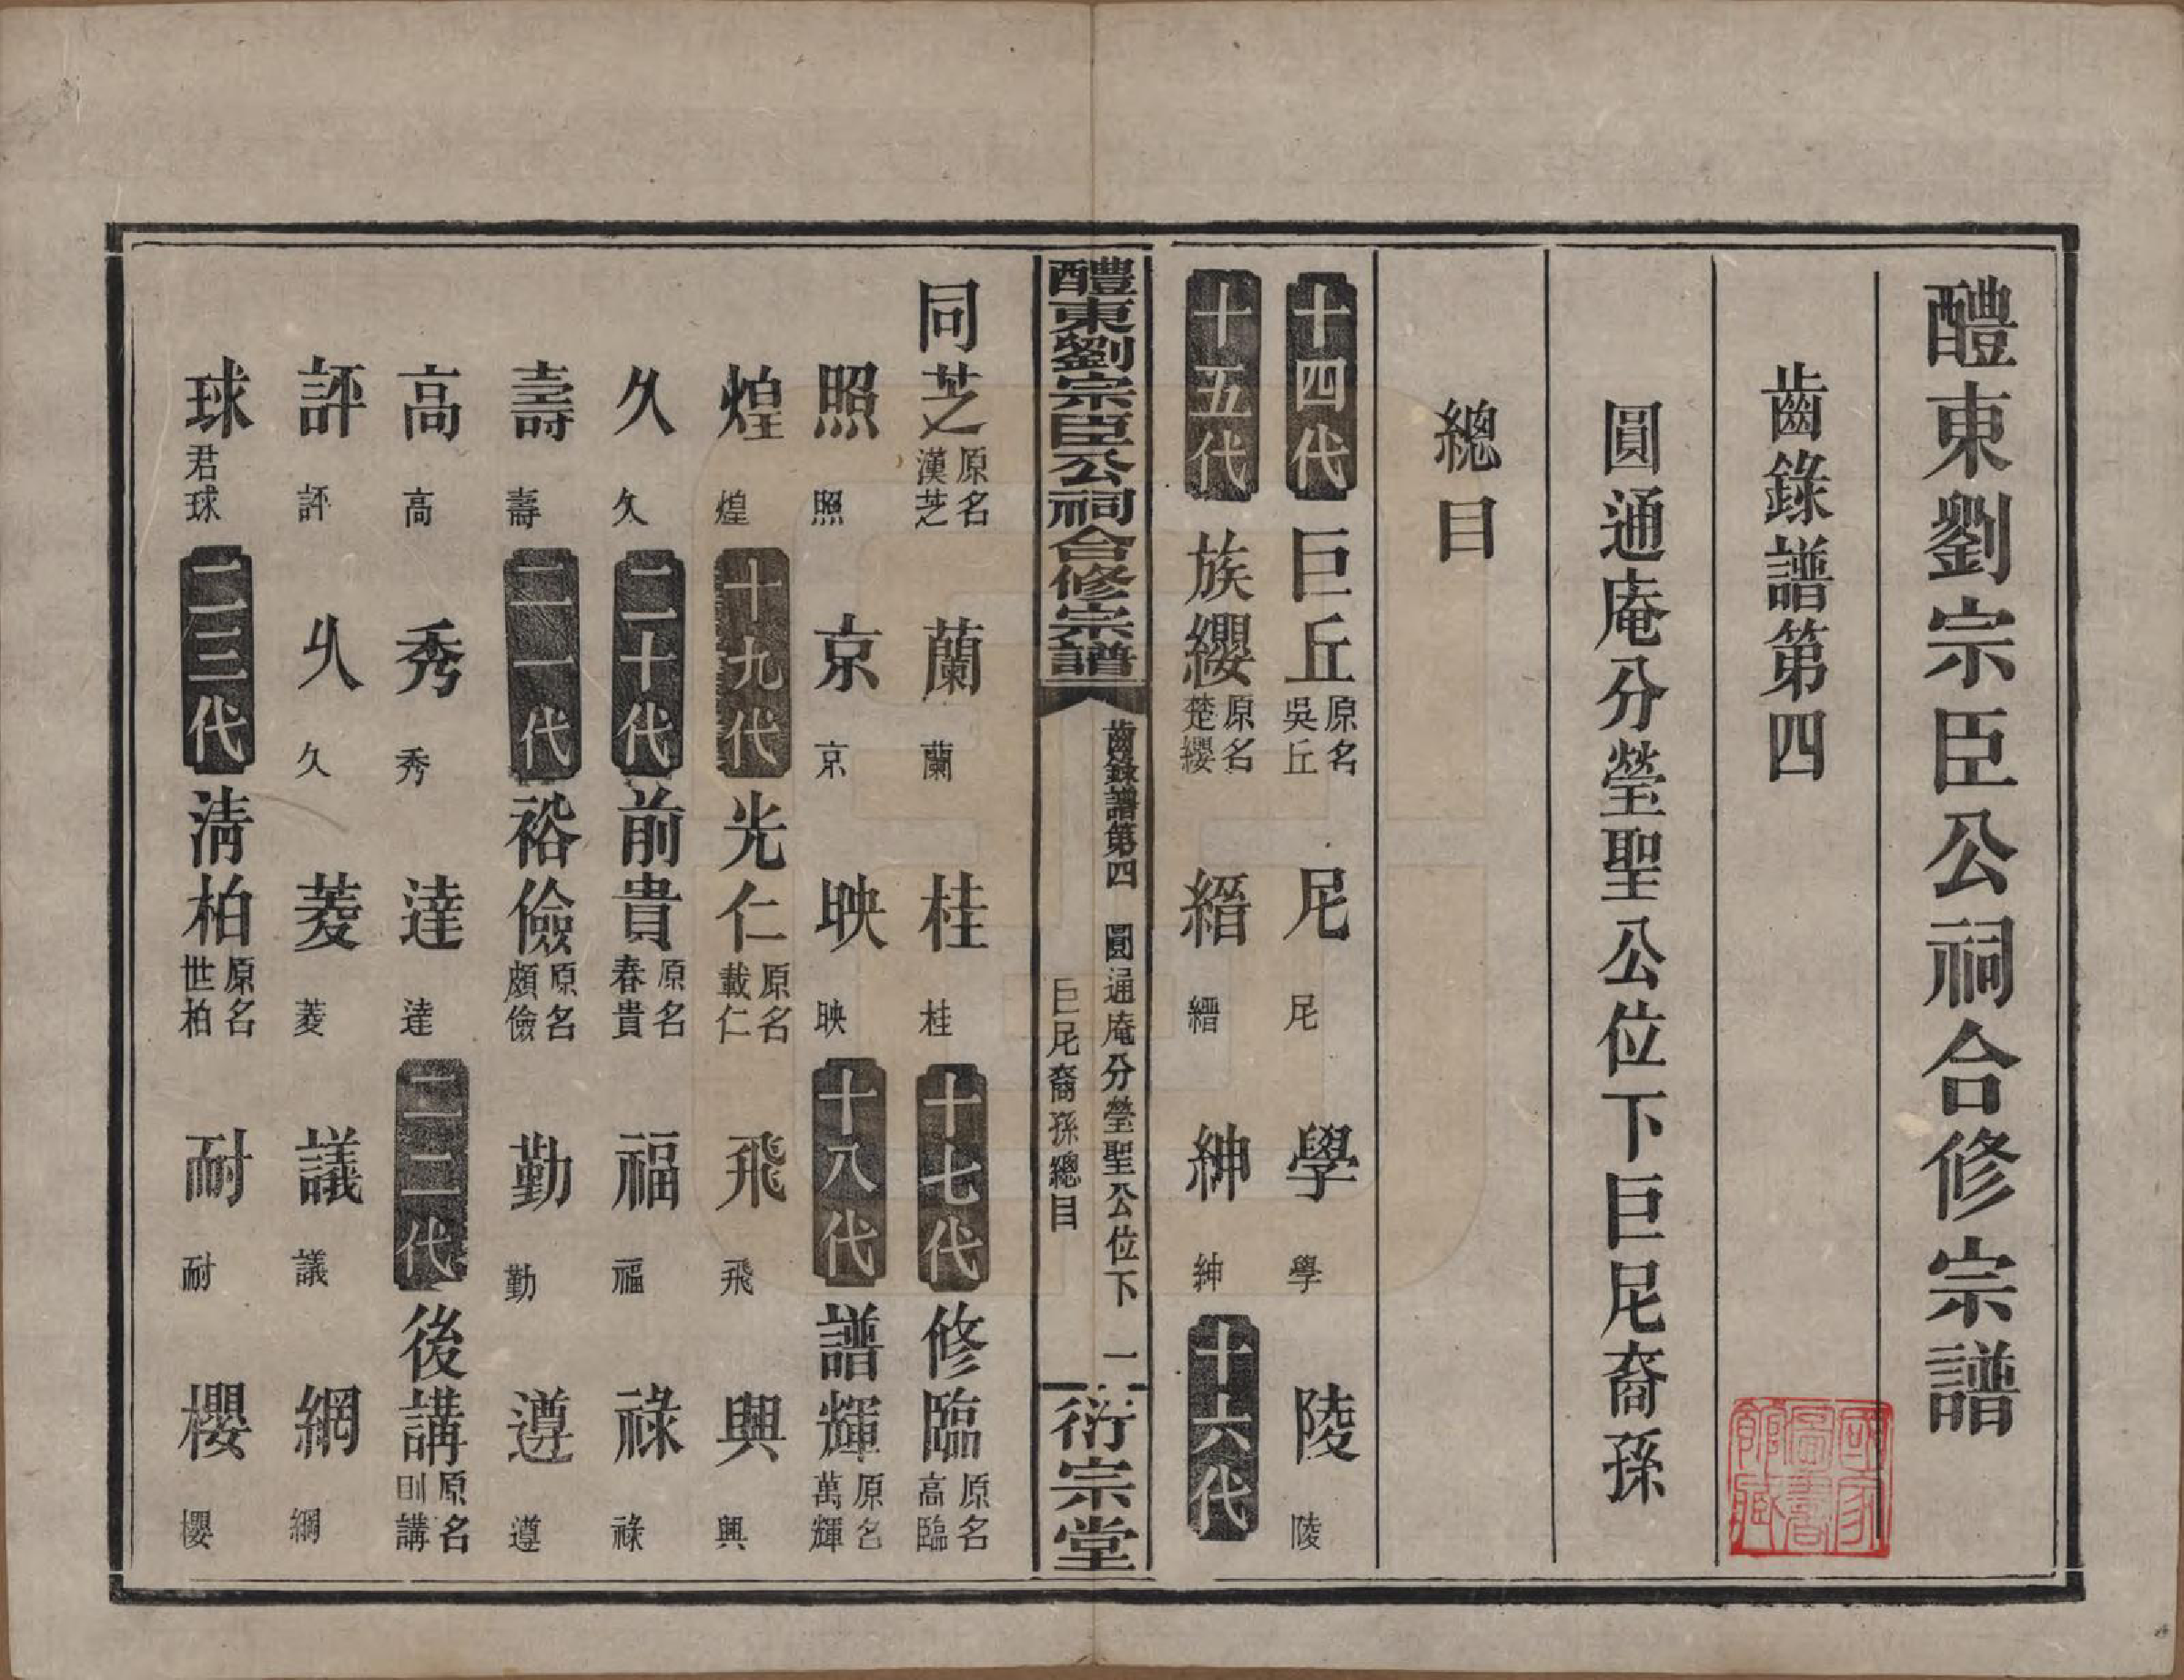 醴東劉宗臣公祠合修宗譜
齒錄譜第四
圓通庵分瑩聖公位下巨尼裔孫
總目
十四代 巨丘 原名吳丘 尼 尼 學 學 陵 陵
十五代 族纓 原名楚纓 縉 縉 紳 紳 十六代
醴東劉宗臣公祠合修宗譜 齒錄譜第四 圓通庵分瑩聖公位下 巨尼裔孫總目 一 衍宗堂
同芝 原名漢芝 蘭 蘭 桂 桂 十七代 修臨 原名高臨
照 照 京 京 映 映 十八代 譜輝 原名萬輝
煌 煌 十九代 光仁 原名載仁 飛 飛 興 興
久 久 二十代 前貴 原名春貴 福 福 祿 祿
壽 壽 二一代 裕儉 原名頗儉 勤 勤 遵 遵
高 高 秀 秀 達 達 二二代 後講 原名則講
評 評 乆 久 菱 菱 議 議 網 網
球 君球 二三代 清柏 原名世柏 耐 耐 櫻 櫻
國家圖書館藏